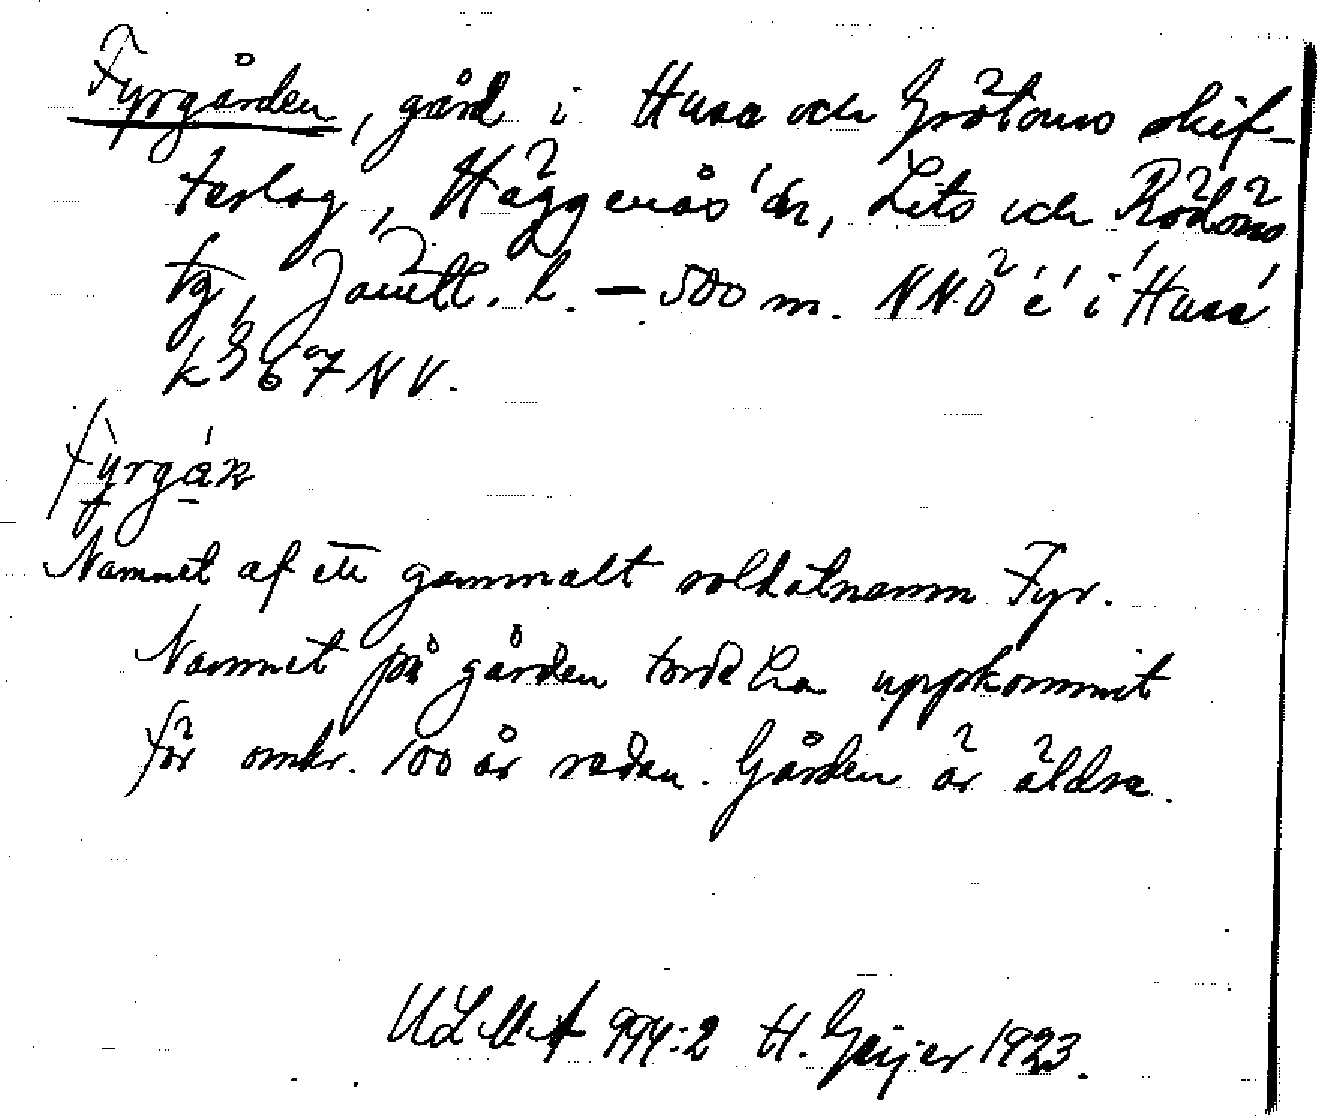 Fyrgården, gård i Husa och Grötoms skif-
terlag, Häggenås sn, Lits och Rödöns
tg, Jämtl. l. – 500 m. NNO i Husa
k 367 NV.
Fyrgáɴ
Namnet af ett gammalt soldatnamn Fyr.
Namnet på gården torde ha uppkommit
för omkr. 100 år sedan. Gården är äldre.
ULMA 994:2 H. Geijer 1923.